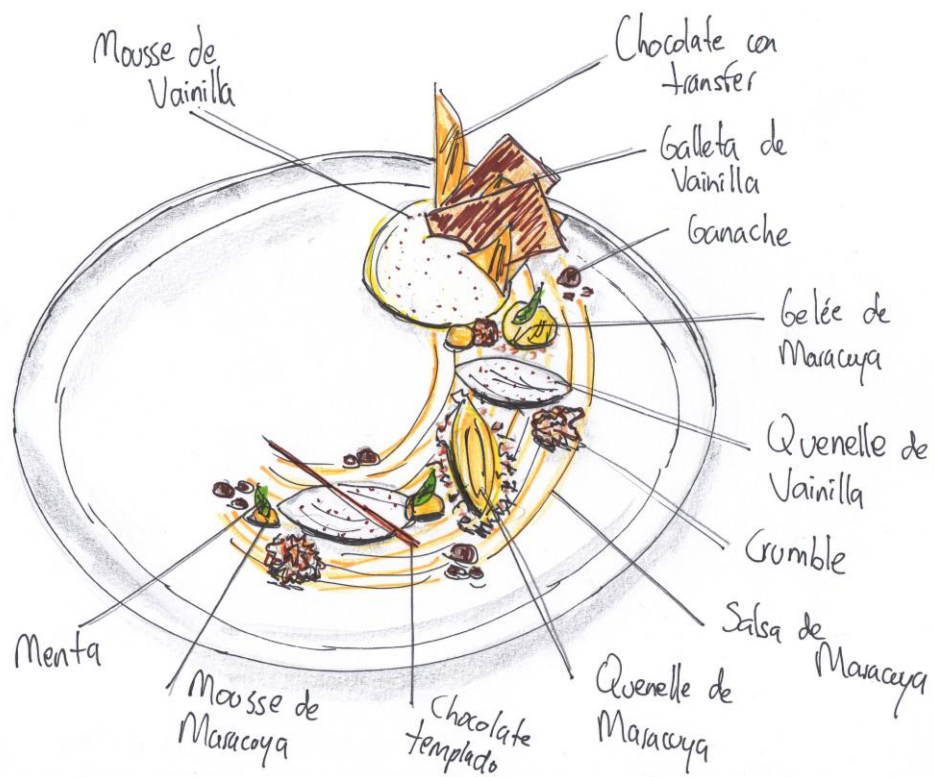 Mousse de
Vainilla
Chocolate con
transfer
Galleta de
Vainilla
Ganache
Gelée de
Maracuya
Quenelle de
Vainilla
Crumble
Salsa de
Maracuya
Quenelle de
Maracuya
Chocolate
templado
Mousse de
Maracuya
Menta